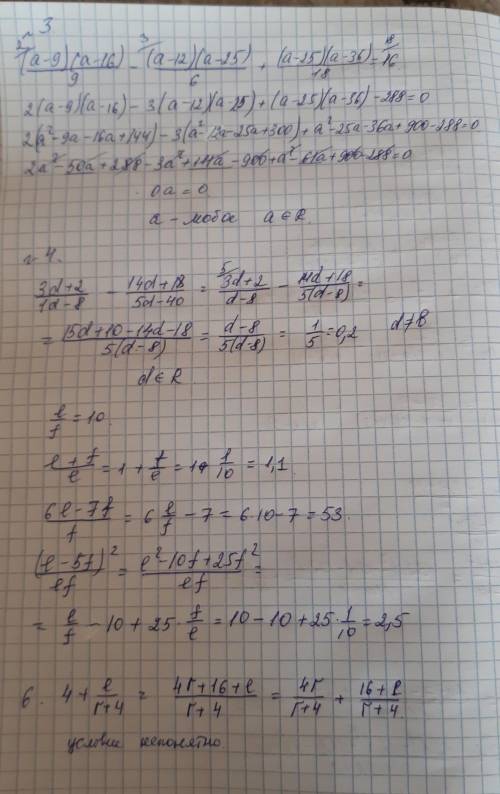 №3
²⁄(a-9)(a-16)/9 - ³⁄(a-12)(a-25)/6 + (a-25)(a-36)/18 = ¹⁸⁄16
2(a-9)(a-16)-3(a-12)(a-25)+(a-25)(a-36)-288=0
2(a²-9a-16a+144)-3(a²-12a-25a+300)+a²-25a-36a+900-288=0
2a²-50a+288-3a²+111a-900+a²-61a+900-288=0
0a=0
a - любое a∈R.
№4.
(3d+2)/(1d-8) - (14d+18)/(5d-40) = ⁵⁄(3d+2)/(d-8) - (14d+18)/(5(d-8)) =
= (15d+10-14d-18)/(5(d-8)) = (d-8)/(5(d-8)) = 1/5 = 0,2 d≠8
d∈R
l/f = 10.
(l+f)/l = 1 + f/l = 1+ 1/10 = 1,1
(6l-7f)/f = 6 l/f - 7 = 6·10-7 = 53.
(l-5f)²/lf = (l²-10f+25f²)/lf =
= l/f - 10 + 25·f/l = 10-10+25·1/10 = 2,5
6. 4 + l/(r+4) = (4r+16+l)/(r+4) = 4r/(r+4) + (16+l)/(r+4)
условие непонятно.